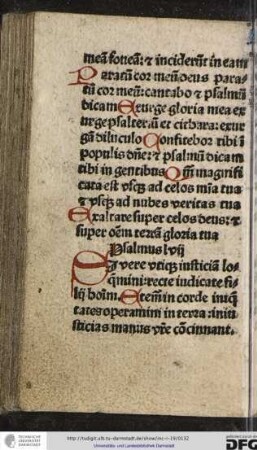 meā foueā: ⁊ inciderūt in eam
Paratū cor meū deus para⸗
tū cor meū: cantabo ⁊ psalmū
dicam Exurge gloria mea ex
urge psalteriū et cithara: exur
gā diluculo Confitebor tibi ī
populis dn̄e: ⁊ psalmū dicam
tibi in gentibus Qm̄ magnifi
cata est vsq3 ad celos mīa tua
⁊ vsq3 ad nubes veritas tua
Exaltare super celos deus: ⁊
super oēm terrā gloria tua
Psalmus lvij
SI vere vtiq3 iusticiā lo⸗
qmini: recte iudicate fi
lij hoīm. Etem̄ in corde iniq
tates operamini in terra: iniu
sticias manus vr̄e cōcinnant.
http://tudigit.ulb.tu-darmstadt.de/show/inc-i-19/0132
Universitäts- und Landesbibliothek Darmstadt
DFG